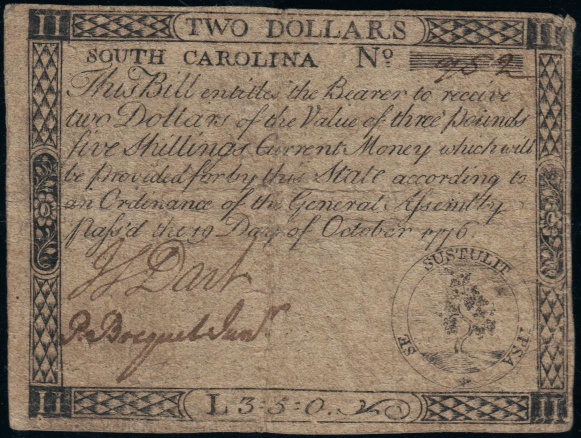 II TWO DOLLARS II
SOUTH CAROLINA Nº 952
This Bill entitles the Bearer to receive
two Dollars of the Value of three pounds
five Shillings Current Money which will
be provided for by this State according to
an Ordinance of the General Assembly
pass'd the 19 Day of October 1776.
Js Dart
P. Bocquet Junr
SUSTULIT
SE IPSA
II L 3=5=0. II